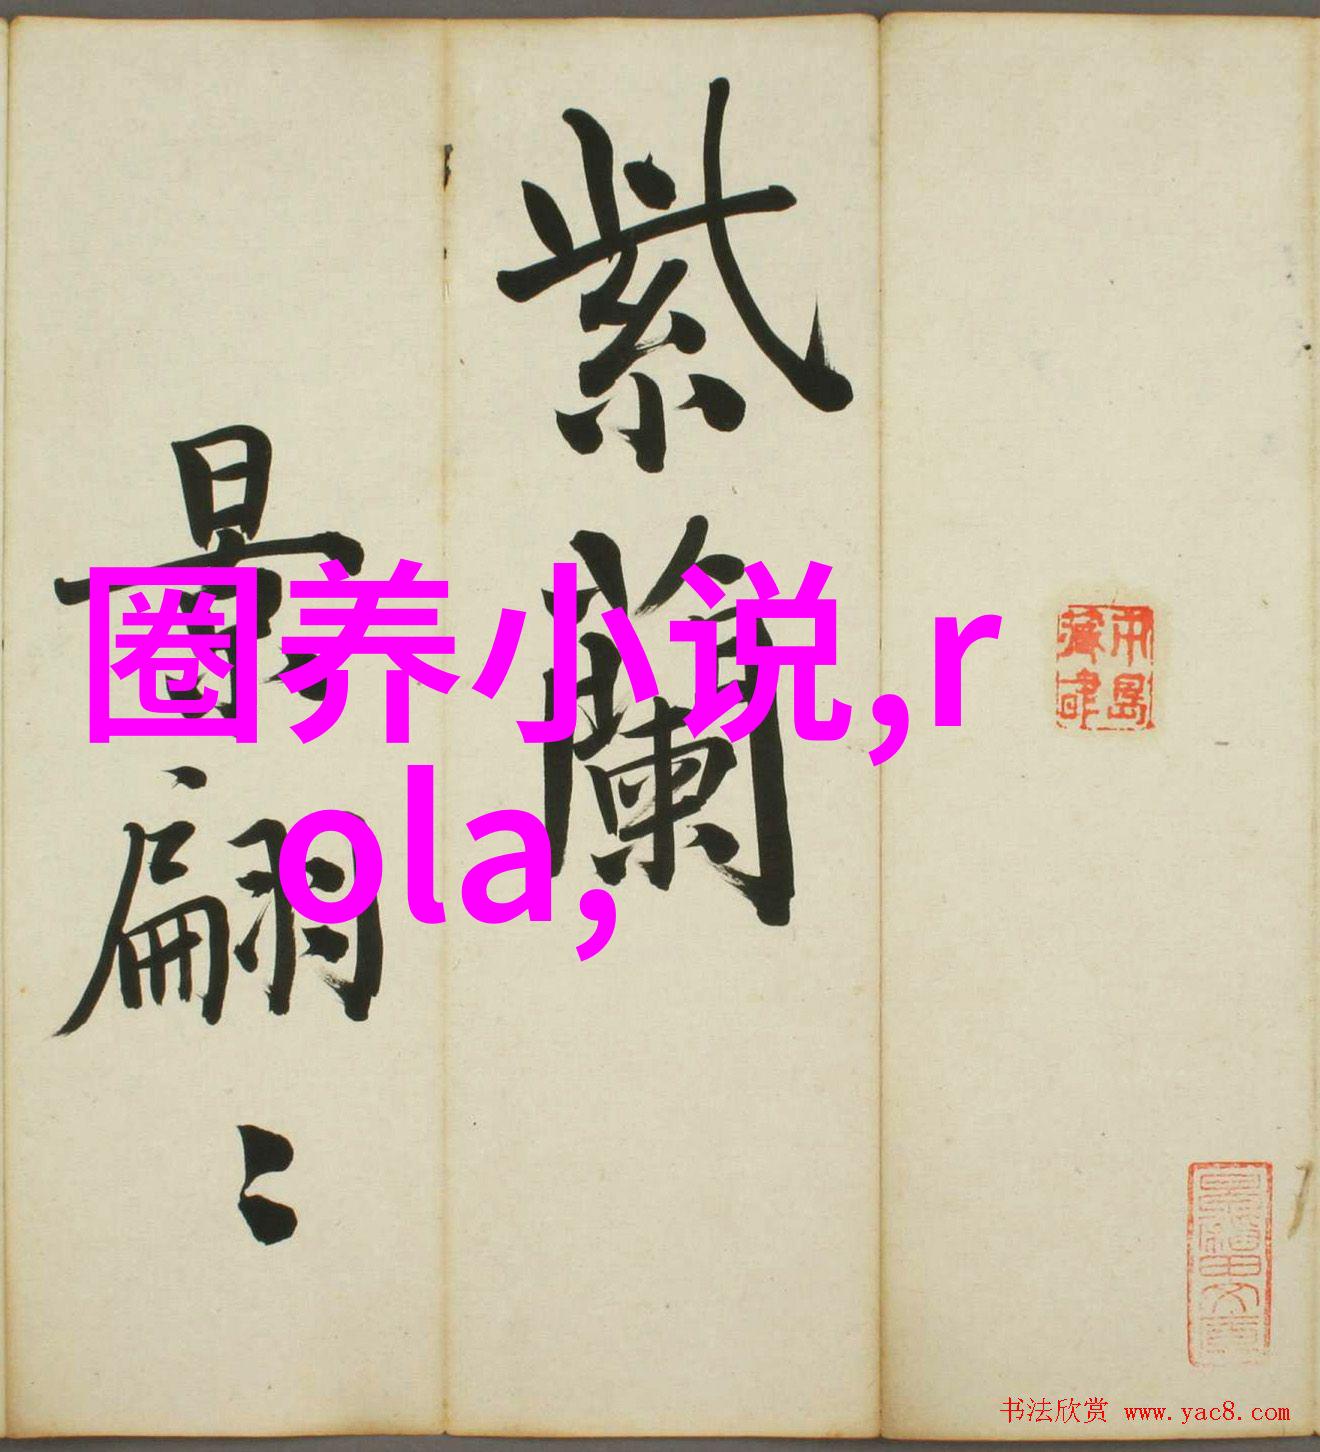 紫蘭
最翩〻
圈养小说,r
ola,
书法欣赏 www.yac8.com